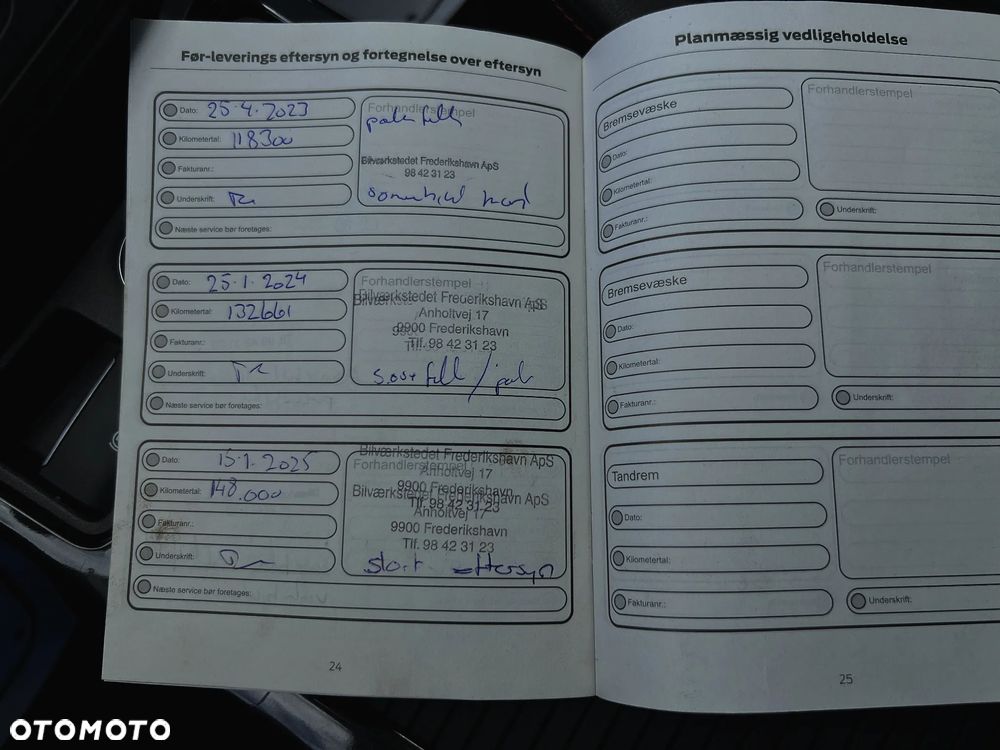 Før-leverings eftersyn og fortegnelse over eftersyn
Dato: 25.4.2023
Kilometertal: 118300
Fakturanr.:
Underskrift:
Næste service bør foretages:
Forhandlerstempel
Bilværkstedet Frederikshavn ApS
98 42 31 23
Dato: 25.1.2024
Kilometertal: 132661
Fakturanr.:
Underskrift:
Næste service bør foretages:
Forhandlerstempel
Bilværkstedet Frederikshavn ApS
Anholtvej 17
9900 Frederikshavn
Tlf. 98 42 31 23
Dato: 15.1.2025
Kilometertal: 148.000
Fakturanr.:
Underskrift:
Næste service bør foretages:
Bilværkstedet Frederikshavn ApS
Forhandlerstempel
Anholtvej 17
9900 Frederikshavn
Tlf. 98 42 31 23
Bilværkstedet Frederikshavn ApS
Anholtvej 17
9900 Frederikshavn
Tlf. 98 42 31 23
stort eftersyn
24
Planmæssig vedligeholdelse
Bremsevæske
Dato:
Kilometertal:
Fakturanr.:
Forhandlerstempel
Underskrift:
Bremsevæske
Dato:
Kilometertal:
Fakturanr.:
Forhandlerstempel
Underskrift:
Tandrem
Dato:
Kilometertal:
Fakturanr.:
Forhandlerstempel
Underskrift:
25
OTOMOTO